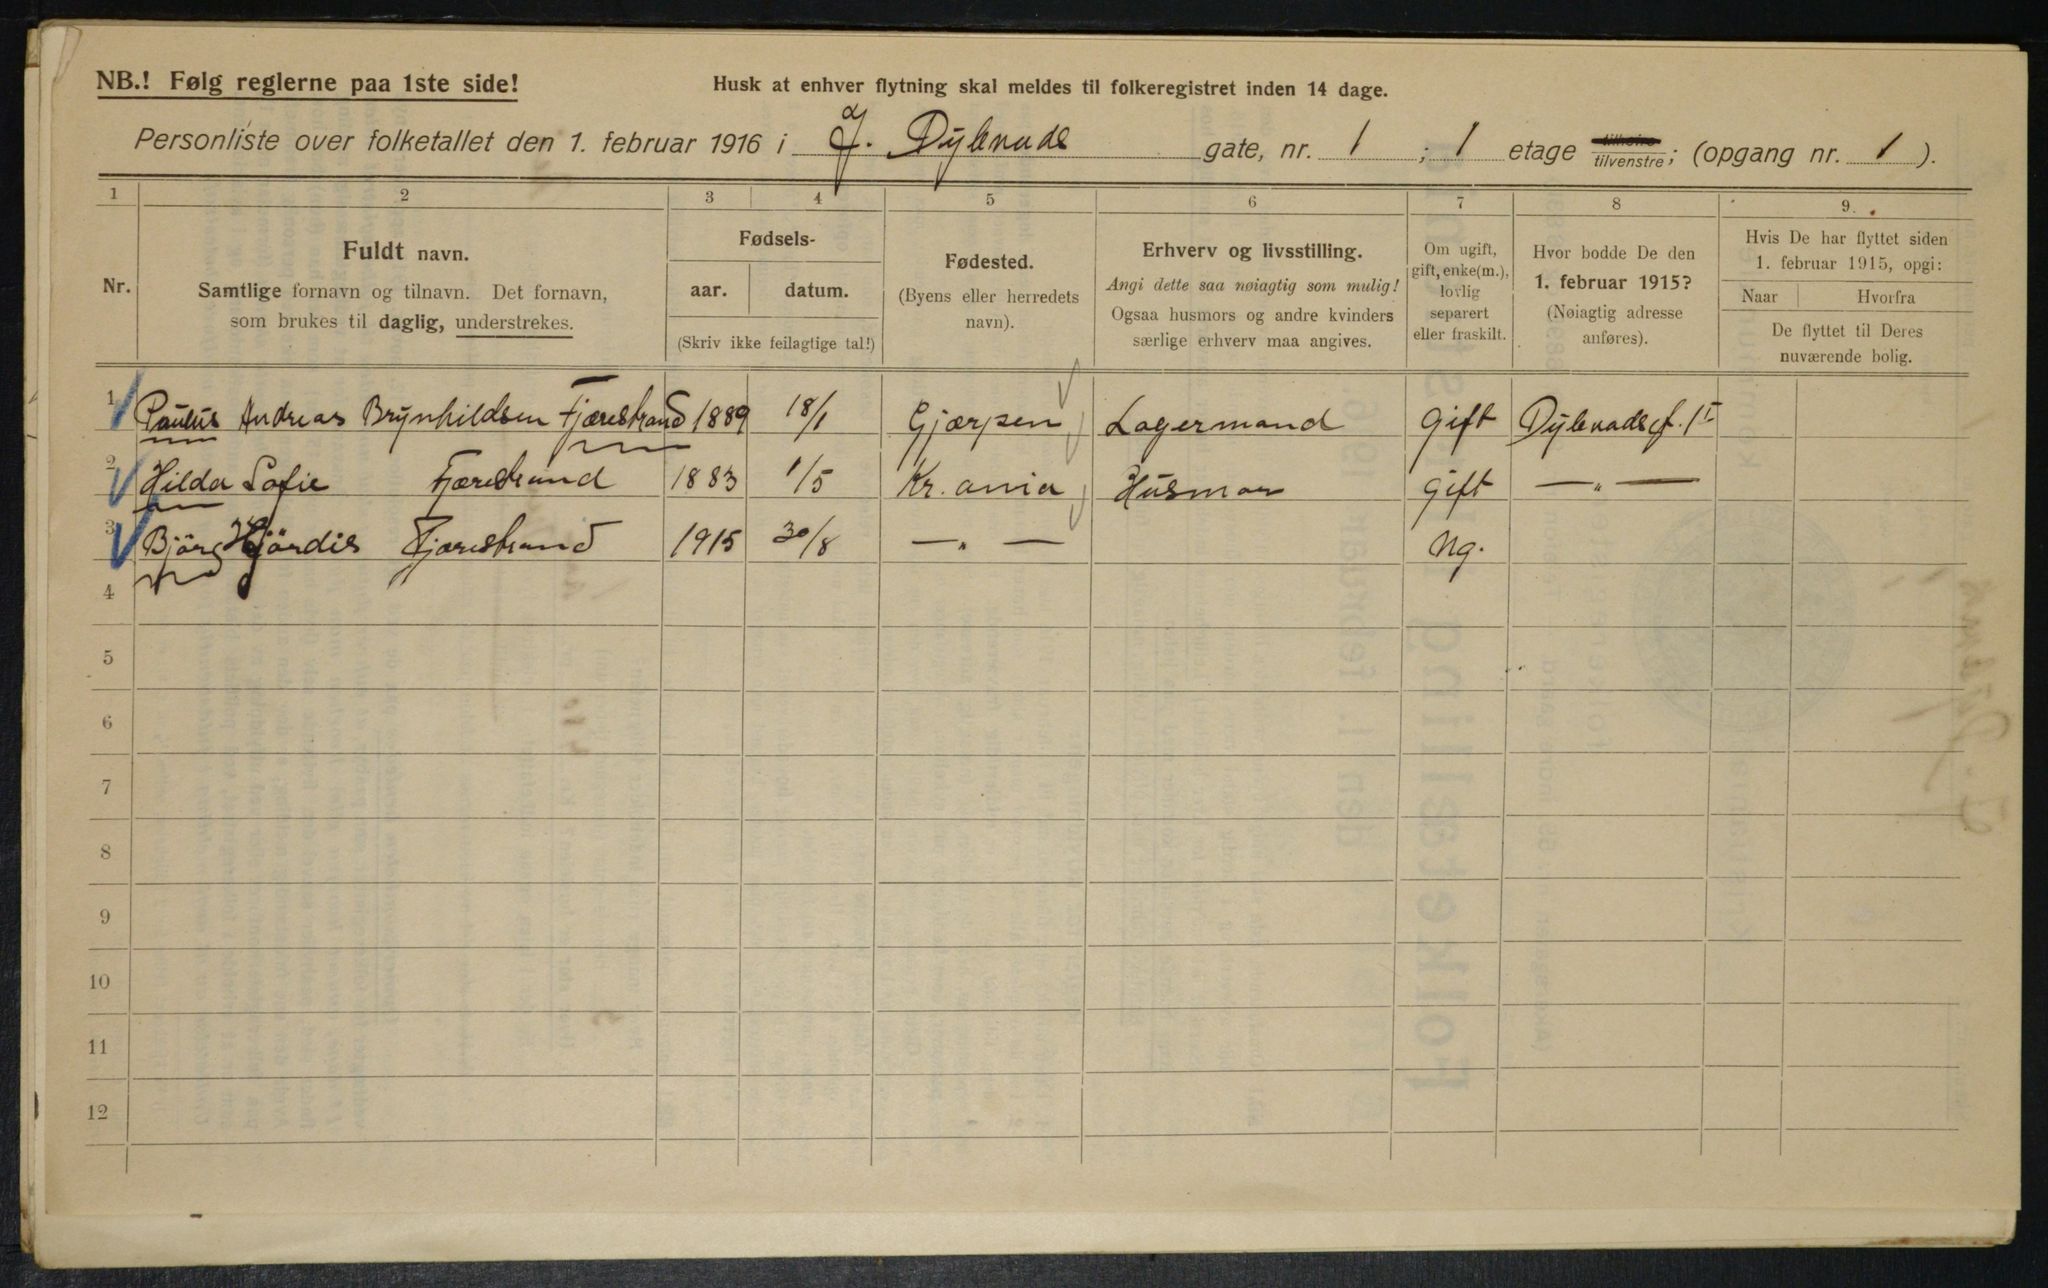 NB.! Følg reglerne paa 1ste side!
Husk at enhver flytning skal meldes til folkeregistret inden 14 dage.
Personliste over folketallet den 1. februar 1916 i J. Dybvads gate, nr. 1 ; 1 etage tilhøire tilvenstre; (opgang nr. 1 ).
1 2 3 4 5 6 7 8 9.
Nr.
Fuldt navn.
Samtlige fornavn og tilnavn. Det fornavn,
som brukes til daglig, understrekes.
Fødsels-
aar. datum.
(Skriv ikke feilagtige tal!)
Fødested.
(Byens eller herredets
navn).
Erhverv og livsstilling.
Angi dette saa nøiagtig som mulig!
Ogsaa husmors og andre kvinders
særlige erhverv maa angives.
Om ugift,
gift, enke(m.),
lovlig
separert
eller fraskilt.
Hvor bodde De den
1. februar 1915?
(Nøiagtig adresse
anføres).
Hvis De har flyttet siden
1. februar 1915, opgi:
Naar Hvorfra
De flyttet til Deres
nuværende bolig.
1 Paulus Andreas Brynhildsen Fjærestrand 1889 18/1 Gjærpen Lagermand gift Dybvadsg. 1 I
2 Hilda Sofie Fjærestrand 1883 1/5 Kr.ania Husmor gift — „ —
3 Bjørg Hjördis Fjærestrand 1915 30/8 — „ — Ug.
4
5
6
7
8
9
10
11
12